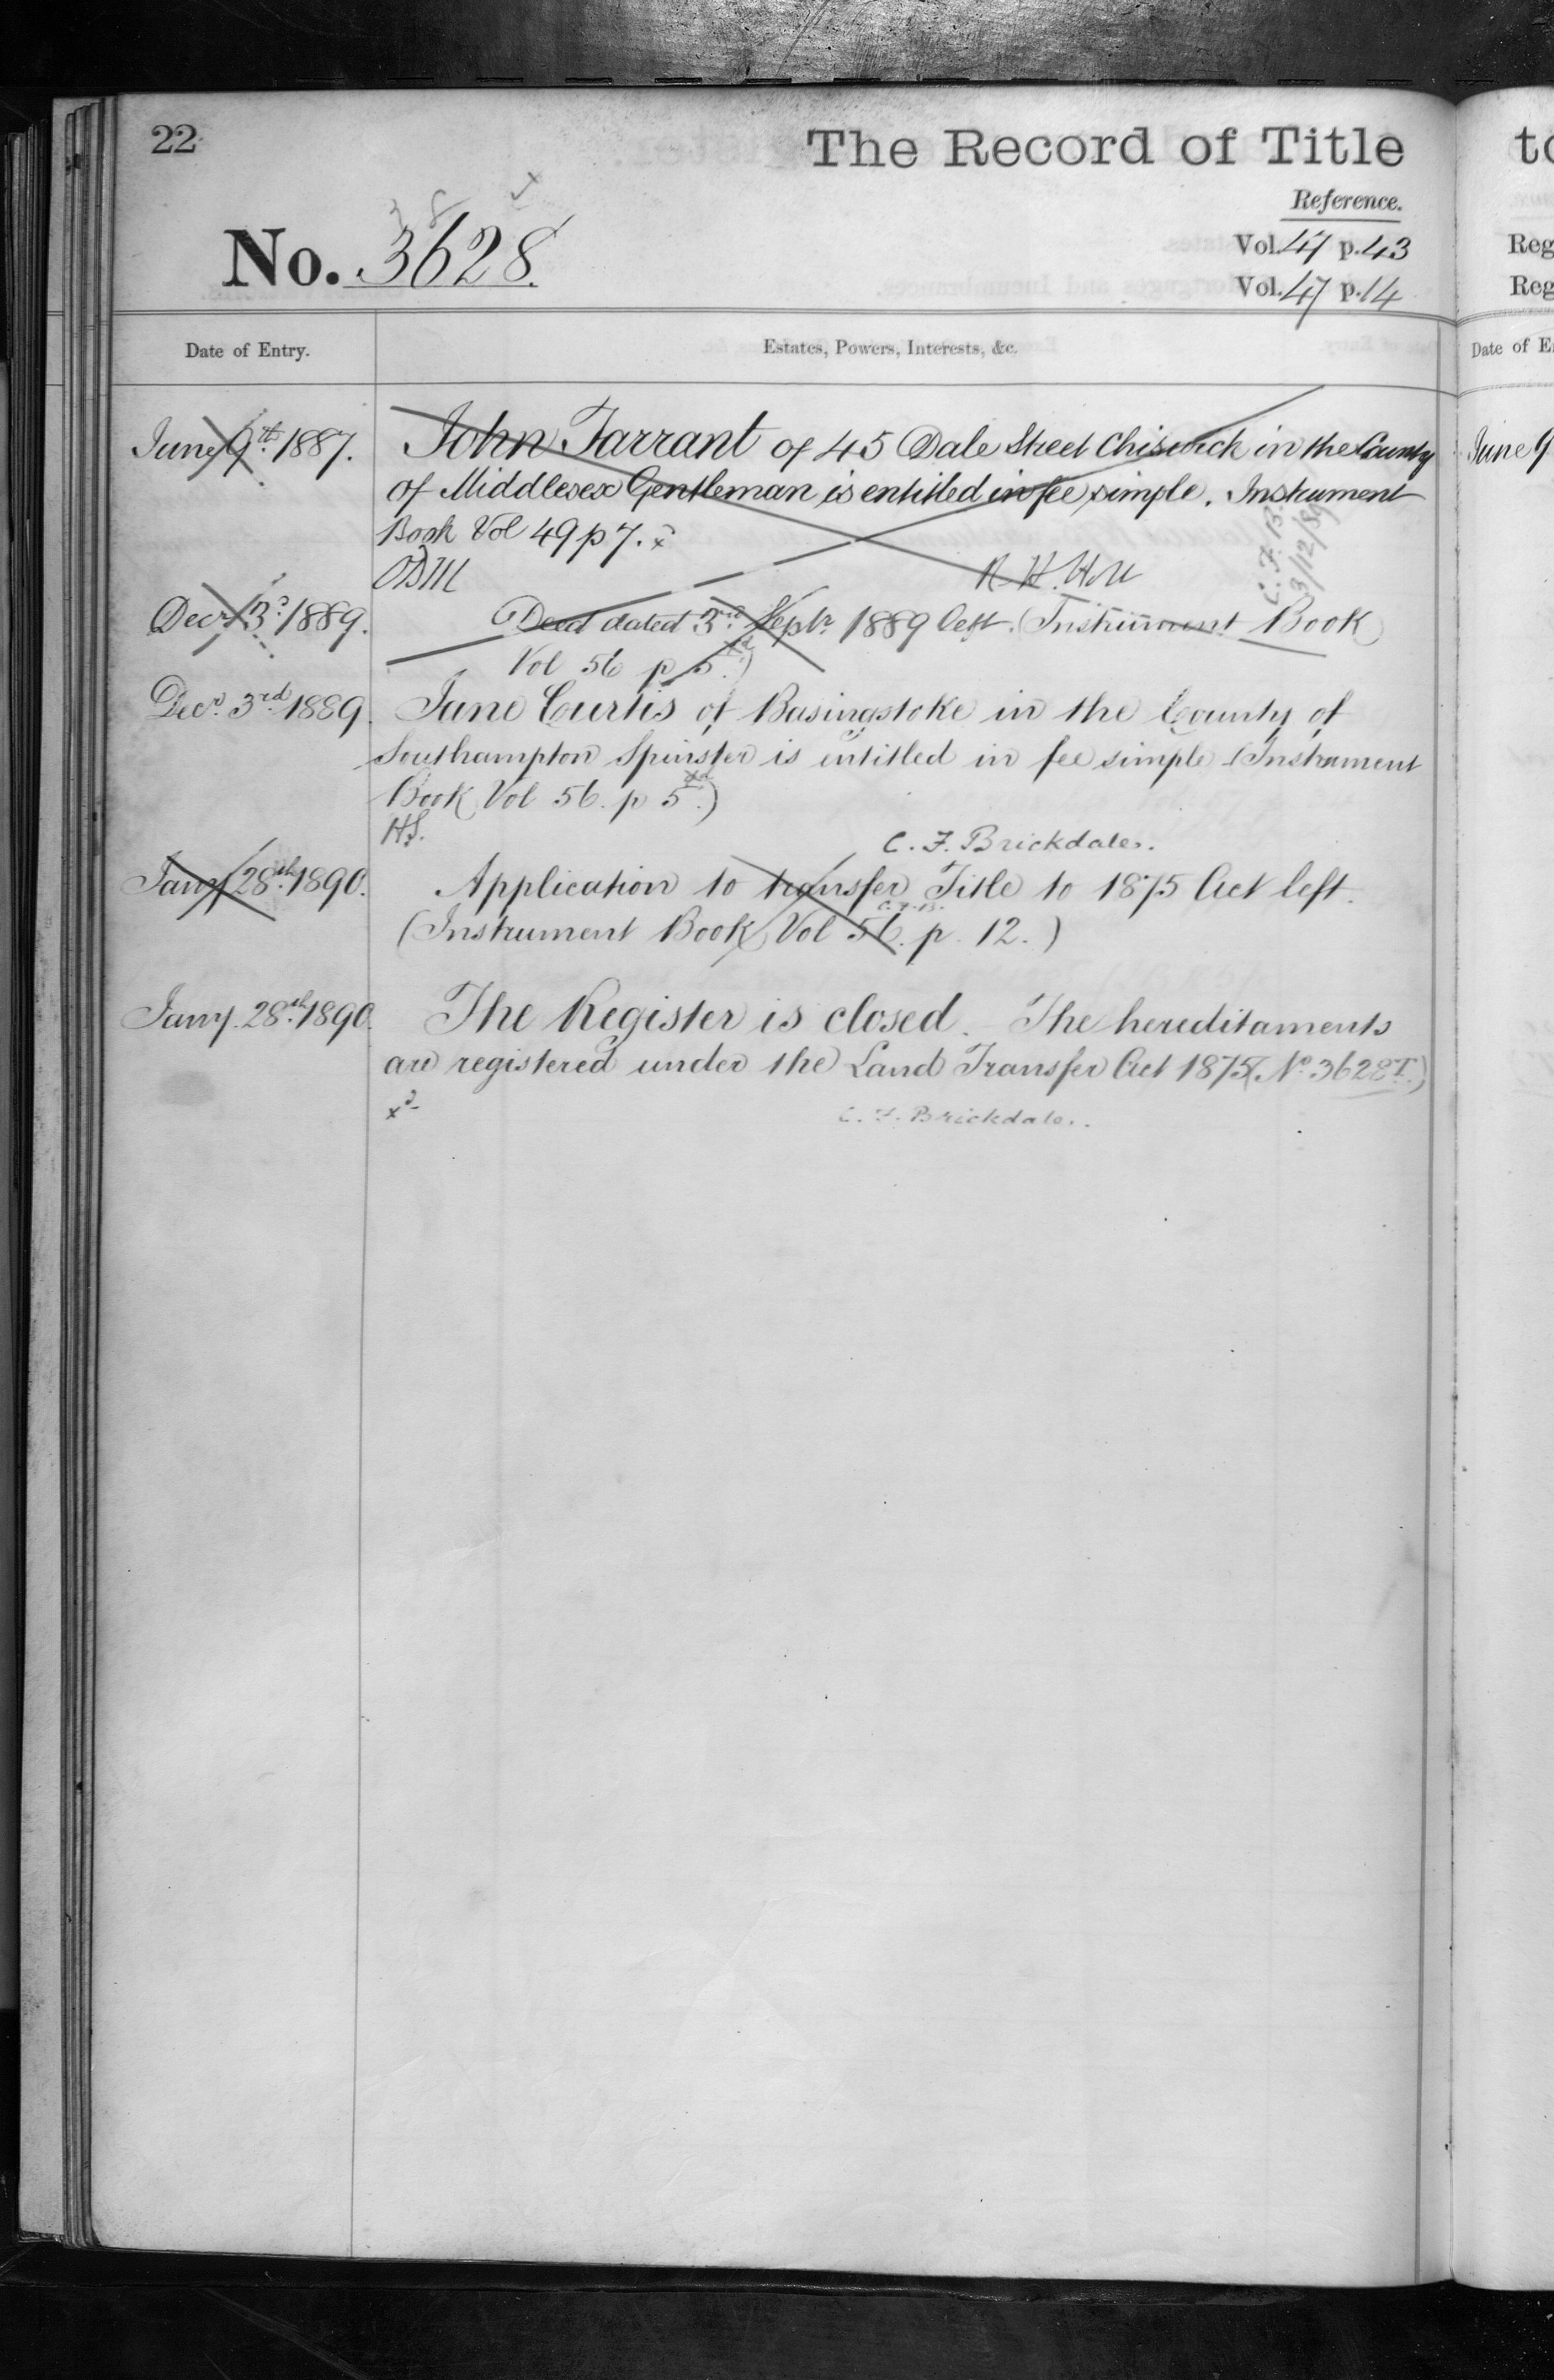 22
The Record of Title
Reference.
No. 3628.
Vol. 47 p. 43
Vol. 47 p. 14
Date of Entry.
Estates, Powers, Interests, &c.
June 9th 1887.
John Tarrant of 45 Dale Street Chiswick in the County
of Middlesex Gentleman is entitled in fee simple. Instrument
Book Vol 49 p 7. x
C. F. B.
3/12/89
Decr 3d 1889.
Deed dated 3rd Septr 1889 left. (Instrument Book
Vol 56 p 5.)
Decr. 3rd 1889.
Jane Curtis of Basingstoke in the County of
Southampton Spinster is entitled in fee simple (Instrument
Book Vol 56. p 5.)
H.S.
C. F. Brickdale.
Jany 28th 1890.
Application to transfer Title to 1875 Act left.
C. F. B.
(Instrument Book Vol 56. p. 12.)
Jany. 28th 1890.
The Register is closed. The hereditaments
are registered under the Land Transfer Act 1875 (No. 3628T.)
C. F. Brickdale.
to
Reg
Reg
Date of E
June 9